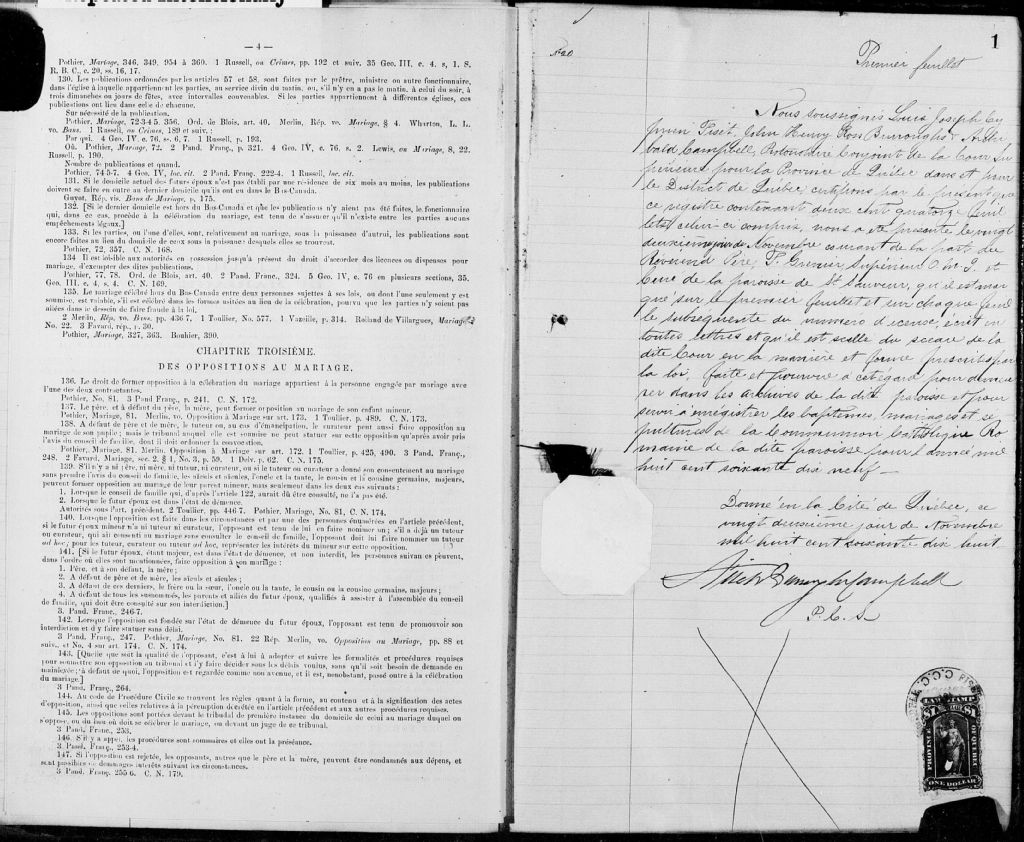 Reposted Intentionally
— 4 —
Pothier, Mariage, 346, 349, 954 à 360. 1 Russell, on Crimes, pp. 192 et suiv. 35 Geo. III, c. 4, s, 1. S.
R. B. C., c. 20, ss. 16, 17.
130. Les publications ordonnées par les articles 57 et 58, sont faites par le prêtre, ministre ou autre fonctionnaire,
dans l'église à laquelle appartiennent les parties, au service divin du matin, ou, s'il n'y en a pas le matin, à celui du soir, à
trois dimanches ou jours de fêtes, avec intervalles convenables. Si les parties appartiennent à différentes églises, ces
publications ont lieu dans celle de chacune.
Sur nécessité de la publication.
Pothier, Mariage, 72-3-4 5. 356. Ord. de Blois, art. 40. Merlin, Rép. vo. Mariage, § 4. Wharton, L. L.
vo. Bans. 1 Russell, on Crimes, 189 et suiv. :
Par qui. 4 Geo. IV, c. 76, ss. 6, 7. 1 Russell, p. 193.
Où. Pothier, Mariage, 72. 2 Pand. Franç., p. 321. 4 Geo. IV, c. 76, s. 2. Lewis, on Mariage, 8, 22,
Russell, p. 190.
Nombre de publications et quand.
Pothier, 74 5-7. 4 Geo. IV, loc. cit. 2 Pand. Franç. 222-4. 1 Russell, loc. cit.
131. Si le domicile actuel des futurs époux n'est pas établi par une résidence de six mois au moins, les publications
doivent se faire en outre au dernier domicile qu'ils ont eu dans le Bas-Canada.
Guyot, Rép. vis. Bans de Mariage, p. 175.
132. [Si le dernier domicile est hors du Bas-Canada et que les publications n'y aient pas été faites, le fonctionnaire
qui, dans ce cas, procède à la célébration du mariage, est tenu de s'assurer qu'il n'existe entre les parties aucuns
empêchements légaux.]
133. Si les parties, ou l'une d'elles, sont, relativement au mariage, sous la puissance d'autrui, les publications sont
encore faites au lieu du domicile de ceux sous la puissance desquels elles se trouvent.
Pothier, 72, 357. C. N. 168.
134 Il est loisible aux autorités en possession jusqu'à présent du droit d'accorder des licences ou dispenses pour
mariage, d'exempter des dites publications.
Pothier, 77, 78. Ord. de Blois, art. 40. 2 Pand. Franç., 324. 5 Geo. IV, c. 76 en plusieurs sections, 35,
Geo. III, c. 4, s. 4. C. N. 169.
135. Le mariage célébré hors du Bas-Canada entre deux personnes sujettes à ses lois, ou dont l'une seulement y est
soumise, est valable, s'il est célébré dans les formes usitées au lieu de la célébration, pourvu que les parties n'y soient pas
allées dans le dessein de faire fraude à la loi.
2 Merlin, Rép. vo. Bans. pp. 436 7. 1 Toullier, No. 577. 1 Vazeille, p. 314. Rolland de Villargues, Mariage
No. 22. 3 Favard, rép., p. 30.
Pothier, Mariage, 327, 363. Bouhier, 390.
CHAPITRE TROISIÈME.
DES OPPOSITIONS AU MARIAGE.
136. Le droit de former opposition à la célébration du mariage appartient à la personne engagée par mariage avec
l'une des deux contractantes.
Pothier, No. 81. 3 Pand Franç., p. 241. C. N. 172.
137. Le père, et à défaut du père, la mère, peut former opposition au mariage de son enfant mineur.
Pothier, Mariage, 81. Merlin, vo. Opposition à Mariage sur art. 173. 1 Toullier, p. 489. C. N. 173.
138. A défaut de père et de mère, le tuteur ou, au cas d'émancipation, le curateur peut aussi faire opposition au
mariage de son pupile ; mais le tribunal auquel elle est soumise ne peut statuer sur cette opposition qu'après avoir pris
l'avis du conseil de famille, dont il doit ordonner la convocation.
Pothier, Mariage, 81. Merlin, Opposition à Mariage sur art. 172. 1 Toullier, p. 425, 490. 3 Pand, Franç.,
248. 2 Favard, Mariage, sec. 2. § 1, No. 3, p. 59. 1 Delv. p. 62. C. N. 175.
139. S'il n'y a ni père, ni mère, ni tuteur, ni curateur, ou si le tuteur ou curateur a donné son consentement au mariage
sans prendre l'avis du conseil de famille, les aïeuls et aïeules, l'oncle et la tante, le cousin et la cousine germains, majeurs,
peuvent former opposition au mariage de leur parent mineur, mais seulement dans les deux cas suivants :
1. Lorsque le conseil de famille qui, d'après l'article 122, aurait dû être consulté, ne l'a pas été.
2. Lorsque le futur époux est dans l'état de démence.
Autorités sous l'art. précédent. 2 Toullier, pp. 446 7. Pothier, Mariage, No. 81, C. N. 174.
140. Lorsque l'opposition est faite dans les circonstances et par une des personnes énumérées en l'article précédent,
si le futur époux mineur n'a ni tuteur ni curateur, l'opposant est tenu de lui en faire nommer un ; s'il a déjà un tuteur
ou curateur, qui ait consenti au mariage sans consulter le conseil de famille, l'opposant doit lui faire nommer un tuteur
ad hoc ; pour les tuteur, curateur ou tuteur ad hoc, représenter les intérêts du mineur sur cette opposition.
141. [Si le futur époux, étant majeur, est dans l'état de démence, et non interdit, les personnes suivantes peuvent,
dans l'ordre où elles sont mentionnées, faire opposition à son mariage :
1. Père, et à son défaut, la mère ;
2. A défaut de père et de mère, les aïeuls et aïeules ;
3. A défaut de ces derniers, le frère ou la sœur, l'oncle ou la tante, le cousin ou la cousine germains, majeurs ;
4. A défaut de tous les susnommés, les parents et alliés du futur époux, qualifiés à assister à l'assemblée du conseil
de famille, qui doit être consulté sur son interdiction.]
3. Pand. Franç., 246-7.
142. Lorsque l'opposition est fondée sur l'état de démence du futur époux, l'opposant est tenu de promouvoir son
interdiction et d'y faire statuer sans délai.
3 Pand. Franç., 247. Pothier, Mariage, No. 81. 22 Rép. Merlin, vo. Opposition au Mariage, pp. 88 et
suiv., et No. 4 sur art. 174. C. N. 174.
143. [Quelle que soit la qualité de l'opposant, c'est à lui à adopter et suivre les formalités et procédures requises
pour soumettre son opposition au tribunal et l'y faire décider sous les délais voulus, sans qu'il soit besoin de demande en
mainlevée ; à défaut de quoi, l'opposition est regardée comme non avenue, et il est, nonobstant, passé outre à la célébration
du mariage.]
3 Pand. Franç., 264.
144. Au code de Procédure Civile se trouvent les règles quant à la forme, au contenu et à la signification des actes
d'opposition, ainsi que celles relatives à la péremption décrétée en l'article précédent et aux autres procédures requises.
145. Les oppositions sont portées devant le tribunal de première instance du domicile de celui au mariage duquel on
s'oppose, ou du lieu où doit se célébrer le mariage, ou devant un juge de ce tribunal.
3 Pand. Franç. 253.
146. S'il y a appel, les procédures sont sommaires et elles ont la préséance.
3 Pand. Franç., 253-4.
147. Si l'opposition est rejetée, les opposants, autres que le père et la mère, peuvent être condamnés aux dépens, et
sont passibles de dommages-intérêts suivant les circonstances.
3 Pand. Franç. 255 6. C. N. 179.
1
Premier feuillet
Nous soussignés Louis Joseph Cy
prien Fiset, John Henry Ross Burroughs & Archi
bald Campbell, Protonotaire Conjoint de la Cour Su
périeure pour la Province de Québec dans et pour
le District de Québec, certifions par le présent, que
ce registre contenant deux cent quatorze feuil
lets celui-ci compris, nous a été présenté le vingt
deuxième jour de Novembre courant de la part du
Révérend Père, F. Grenier, Supérieur O. M. I. et
Curé de la paroisse de St Sauveur, qu'il est mar
qué sur le premier feuillet et sur chaque feuil
let subséquent du numéro d'icenx, écrit en
toutes lettres et qu'il est scellé du sceau de la
dite Cour en la manière et forme prescrite par
la loi. Faite et pourvu à cet égard pour demeu
rer dans les archives de la dite paroisse et pour
servir à enregistrer les baptêmes, mariages et sé
pultures de la Communion Catholique Ro
maine de la dite paroisse pour l'année mil
huit cent soixante dix neuf —
Donné en la Cité de Québec, ce
vingt deuxième jour de Novembre
mil huit cent soixante dix huit
Fiset Burroughs Campbell
P. C. S
C.C.C.
LAW STAMP
$1 $1
PROVINCE OF QUEBEC
ONE DOLLAR